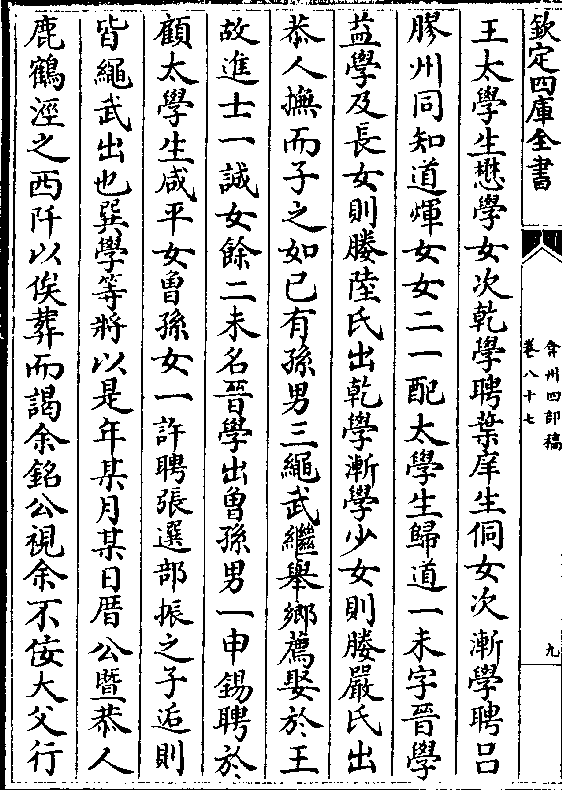 欽定四庫全書
弇州四部稿
卷八十七
九
王太學生懋學女次乾學聘葉庠生侗女次漸學聘吕
膠州同知道煇女女二一配太學生歸道一未字晉學
益學及長女則媵陸氏出乾學漸學少女則媵嚴氏出
恭人撫而子之如已有孫男三繩武繼舉鄉薦娶於王
故進士一誠女餘二未名晉學出曾孫男一申錫聘於
顧太學生咸平女曾孫女一許聘張選部振之子逅則
皆繩武出也巽學等將以是年某月某日厝公暨恭人
鹿鶴涇之西阡以俟葬而謁余銘公視余不佞大父行